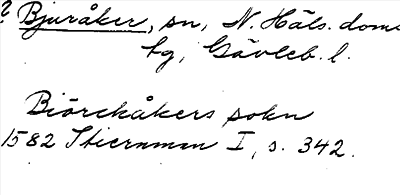 ? Bjuråker, sn, N. Häls. doms
hg, Gävleb. l.
Biörckåkers sokn
1582 Stiernman I, s. 342.